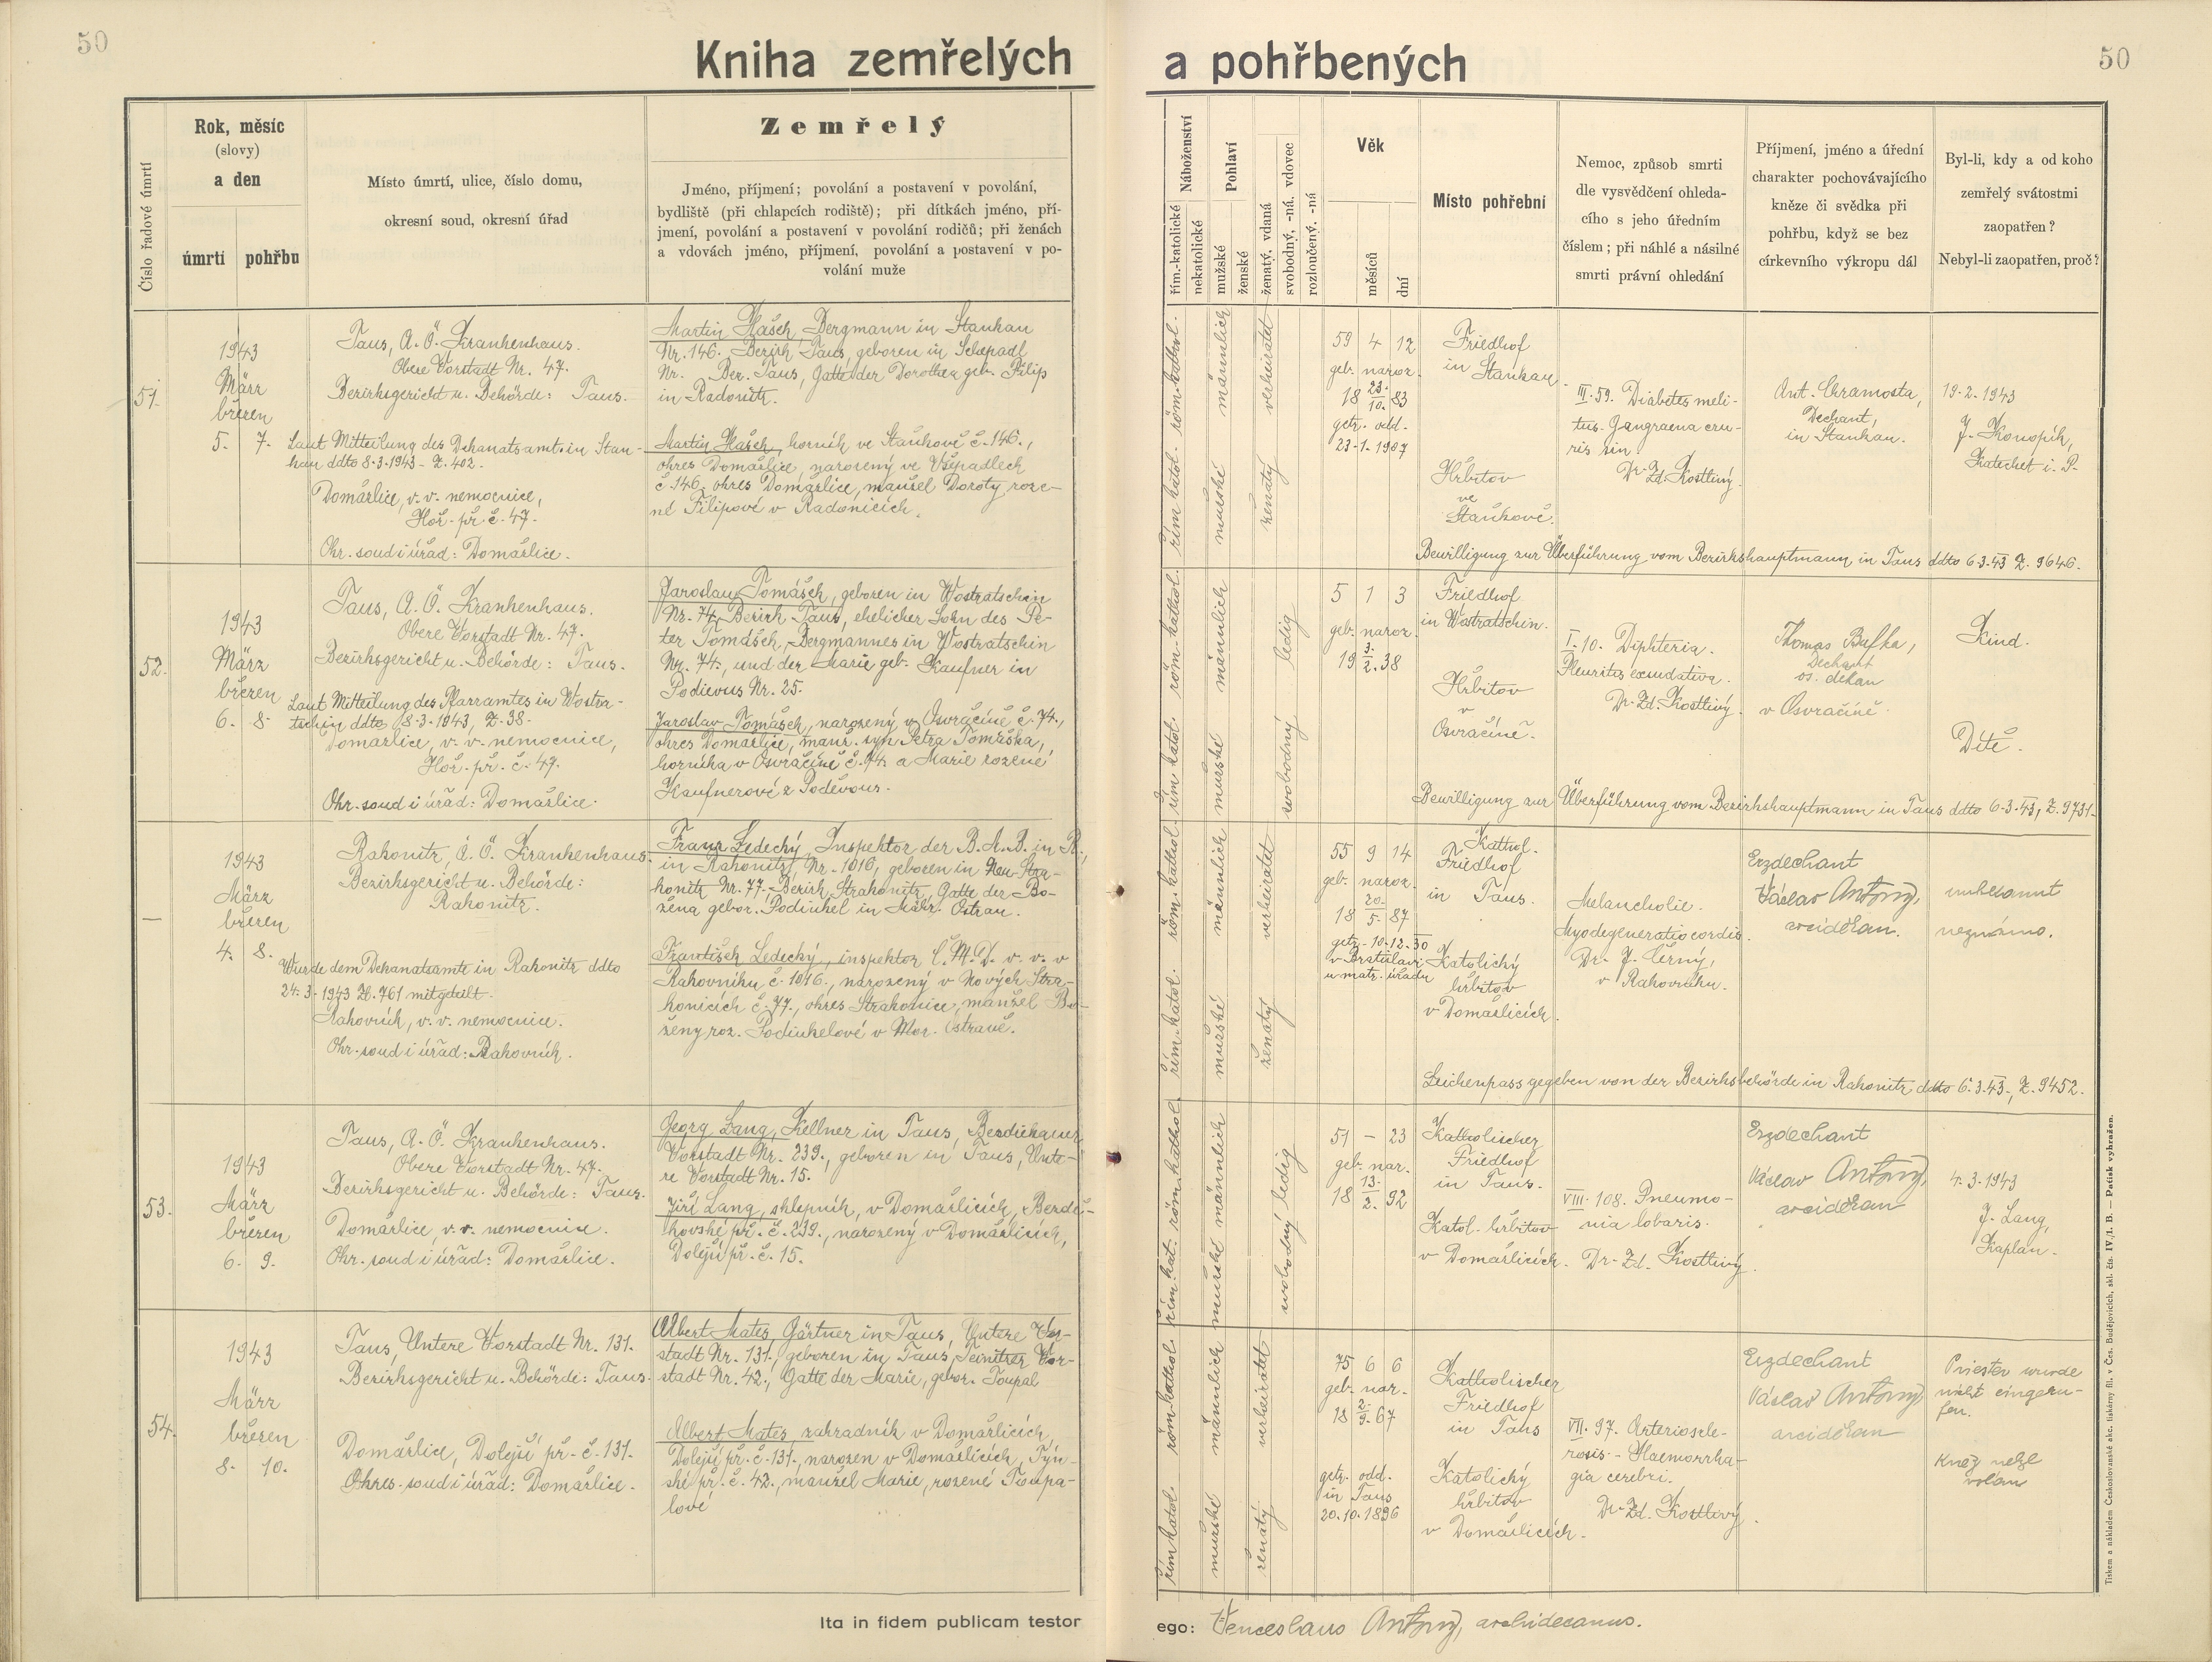 50
Kniha zemřelých
Číslo řadové úmrtí
Rok, měsíc
(slovy)
a den
úmrtí
pohřbu
Místo úmrtí, ulice, číslo domu,
okresní soud, okresní úřad
Zemřelý
Jméno, příjmení; povolání a postavení v povolání,
bydliště (při chlapcích rodiště); při dítkách jméno, pří-
jmení, povolání a postavení v povolání rodičů; při ženách
a vdovách jméno, příjmení, povolání a postavení v po-
volání muže
51.
1943
März
březen
5. 7.
Taus, A. Ö. Krankenhaus.
Obere Vorstadt Nr. 47.
Bezirksgericht u. Behörde: Taus.
Laut Mitteilung des Dekanatsamt. in Stan-
kau ddto 8.3.1943 - Z. 402.
Domažlice, v. v. nemocnice,
Hoř. př. č. 47.
Okr. soud i úřad: Domažlice.
Martin Hašek, Bergmann in Stankau
Nr. 146. Bezirk Taus, geboren in Schepadl
Nr. Bez. Taus, Gatte der Dorothea geb. Filip
in Radonitz.
Martin Hašek, horník ve Staňkově č. 146.,
okres Domažlice, narozený ve Všepadlech
č. 146. okres Domažlice, manžel Doroty roze-
né Filipové v Radonicích.
52.
1943
März
březen
6. 8.
Taus, A. Ö. Krankenhaus.
Obere Vorstadt Nr. 47.
Bezirksgericht u. Behörde: Taus.
Laut Mitteilung des Pfarramtes in Wostra-
tschin ddto 8.3.1943, Z. 38.
Domažlice, v. v. nemocnice,
Hoř. př. č. 47.
Okr. soud i úřad: Domažlice.
Jaroslau Tomášek, geboren in Wostratschin
Nr. 74, Bezirk Taus, ehelicher Sohn des Pe-
ter Tomášek, Bergmannes in Wostratschin
Nr. 74, und der Marie geb. Kaufner in
Podievus Nr. 25.
Jaroslav Tomášek, narozený v Osvračíně č. 74.,
okres Domažlice, manž. syn Petra Tomáška,
horníka v Osvračíně č. 74. a Marie rozené
Kaufnerové z Poděvous.
—
1943
März
březen
4. 8.
Rakonitz, A. Ö. Krankenhaus.
Bezirksgericht u. Behörde:
Rakonitz.
Wurde dem Dekanatsamte in Rakonitz ddto
24.3.1943 Z. 761 mitgeteilt.
Rakovník, v. v. nemocnice.
Okr. soud i úřad: Rakovník.
Franz Ledecký, Inspektor der B. M. B. in R.,
in Rakonitz, Nr. 1016, geboren in Neu-Stra-
konitz Nr. 77, Bezirk Strakonitz, Gatte der Bo-
žena gebor. Podinkel in Mähr. Ostrau.
František Ledecký, inspektor Č. M. D. v. v. v
Rakovníku č. 1016., narozený v Nových Stra-
konicích č. 77., okres Strakonice, manžel Bo-
ženy roz. Podinkelové v Mor. Ostravě.
53.
1943
März
březen
6. 9.
Taus, A. Ö. Krankenhaus.
Obere Vorstadt Nr. 47.
Bezirksgericht u. Behörde: Taus.
Domažlice, v. v. nemocnice.
Okr. soud i úřad: Domažlice.
Georg Lang, Kellner in Taus, Besdiekauer
Vorstadt Nr. 239., geboren in Taus, Unte-
re Vorstadt Nr. 15.
Jiří Lang, sklepník, v Domažlicích, Bezdě-
kovské př. č. 239., narozený v Domažlicích,
Dolejší př. č. 15.
54.
1943
März
březen
8. 10.
Taus, Untere Vorstadt Nr. 131.
Bezirksgericht u. Behörde: Taus.
Domažlice, Dolejší př. č. 131.
Okres. soud i úřad: Domažlice.
Albert Mates, Gärtner in Taus, Untere Vor-
stadt Nr. 131., geboren in Taus, Teinitzer Vor-
stadt Nr. 42., Gatte der Marie, gebor. Toupal
Albert Mates, zahradník v Domažlicích,
Dolejší př. č. 131., narozen v Domažlicích, Týn-
ské př. č. 42., manžel Marie, rozené Toupa-
lové
Ita in fidem publicam testor
50
a pohřbených
Náboženství
řím.-katolické
nekatolické
Pohlaví
mužské
ženské
ženatý, vdaná
svobodný, -ná, vdovec
rozloučený, -ná
Věk
měsíců
dní
Místo pohřební
Nemoc, způsob smrti
dle vysvědčení ohleda-
cího s jeho úředním
číslem; při náhlé a násilné
smrti právní ohledání
Příjmení, jméno a úřední
charakter pochovávajícího
kněze či svědka při
pohřbu, když se bez
církevního výkropu dál
Byl-li, kdy a od koho
zemřelý svátostmi
zaopatřen?
Nebyl-li zaopatřen, proč?
röm. kathol.
řím. katol.
männlich
mužské
verheiratet
ženatý
59 4 12
geb. naroz.
18 23./10. 83
getr. odd.
23.1.1907
Friedhof
in Stankau.
Hřbitov
ve
Staňkově.
III. 59. Diabetes meli-
tus. Gangraena cru-
ris sin.
Dr. Zd. Kostlivý.
Ant. Chramosta,
Dechant,
in Stankau.
19.2.1943
J. Konopík,
Katechet i. P.
Bewilligung zur Überführung vom Bezirkshauptmann in Taus ddto 6.3.43 Z. 9646.
röm. kathol.
řím. katol.
männlich
mužské
ledig
svobodný
5 1 3
geb. naroz.
19 3./2. 38
Friedhof
in Wostratschin.
Hřbitov
v
Osvračíně.
I. 10. Diphteria.
Pleuritis exsudativa.
Dr. Zd. Kostlivý.
Thomas Bufka,
Dechant
os. děkan
v Osvračíně.
Kind.
Dítě.
Bewilligung zur Überführung vom Bezirkshauptmann in Taus ddto 6.3.43, Z. 9731.
röm. kathol.
řím. katol.
männlich
mužské
verheiratet
ženatý
55 9 14
geb. naroz.
18 20./5. 87
getr. 10.12.30
v Bratislavě
u matr. úřadu
Kathol.
Friedhof
in Taus.
Katolický
hřbitov
v Domažlicích.
Melancholie.
Myodegeneratio cordis.
Dr. J. Černý,
v Rakovníku.
Erzdechant
Václav Antony,
arciděkan.
unbekannt
neznámo.
Leichenpass gegeben von der Bezirksbehörde in Rakonitz ddto 6.3.43., Z. 9452.
röm. kathol.
řím. kat.
männlich
mužské
ledig
svobodný
51 — 23
geb. nar.
18 13./2. 92
Katholischer
Friedhof
in Taus.
Katol. hřbitov
v Domažlicích.
VIII. 108. Pneumo-
nia lobaris.
Dr. Zd. Kostlivý.
Erzdechant
Václav Antony,
arciděkan
4.3.1943
J. Lang,
Kaplan.
röm. kathol.
řím. katol.
männlich
mužské
verheiratet
ženatý
75 6 6
geb. nar.
18 2./9. 67
getr. odd.
in Taus
20.10.1896
Katholischer
Friedhof
in Taus
Katolický
hřbitov
v Domažlicích.
VII. 97. Arterioscle-
rosis. - Haemorrha-
gia cerebri.
Dr. Zd. Kostlivý.
Erzdechant
Václav Antony,
arciděkan
Priester wurde
nicht eingeru-
fen.
Kněz nebyl
volán
ego: Venceslaus Antony, archidecanus.
Tiskem a nákladem Československé akc. tiskárny fil. v Čes. Budějovicích, skl. čís. IV./1. B. — Patisk vyhražen.